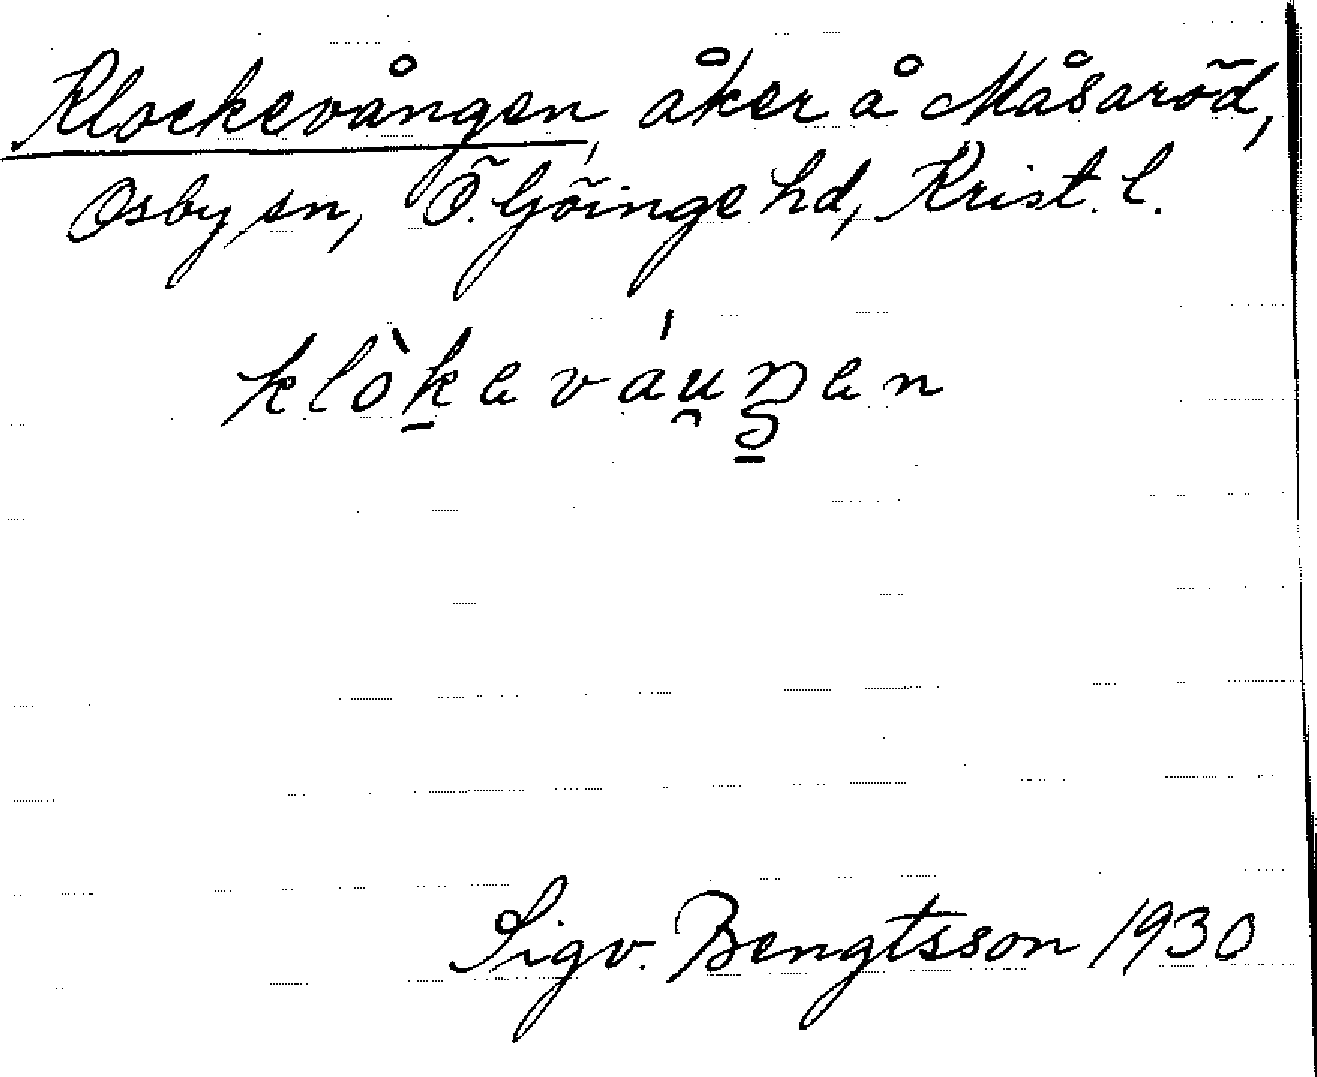 Klockevången, åker å Måsaröd,
Osby sn, Ö. Göinge hd, Krist. l.
klòk̠eváu̯ŋ̠en
Sigv. Bengtsson 1930